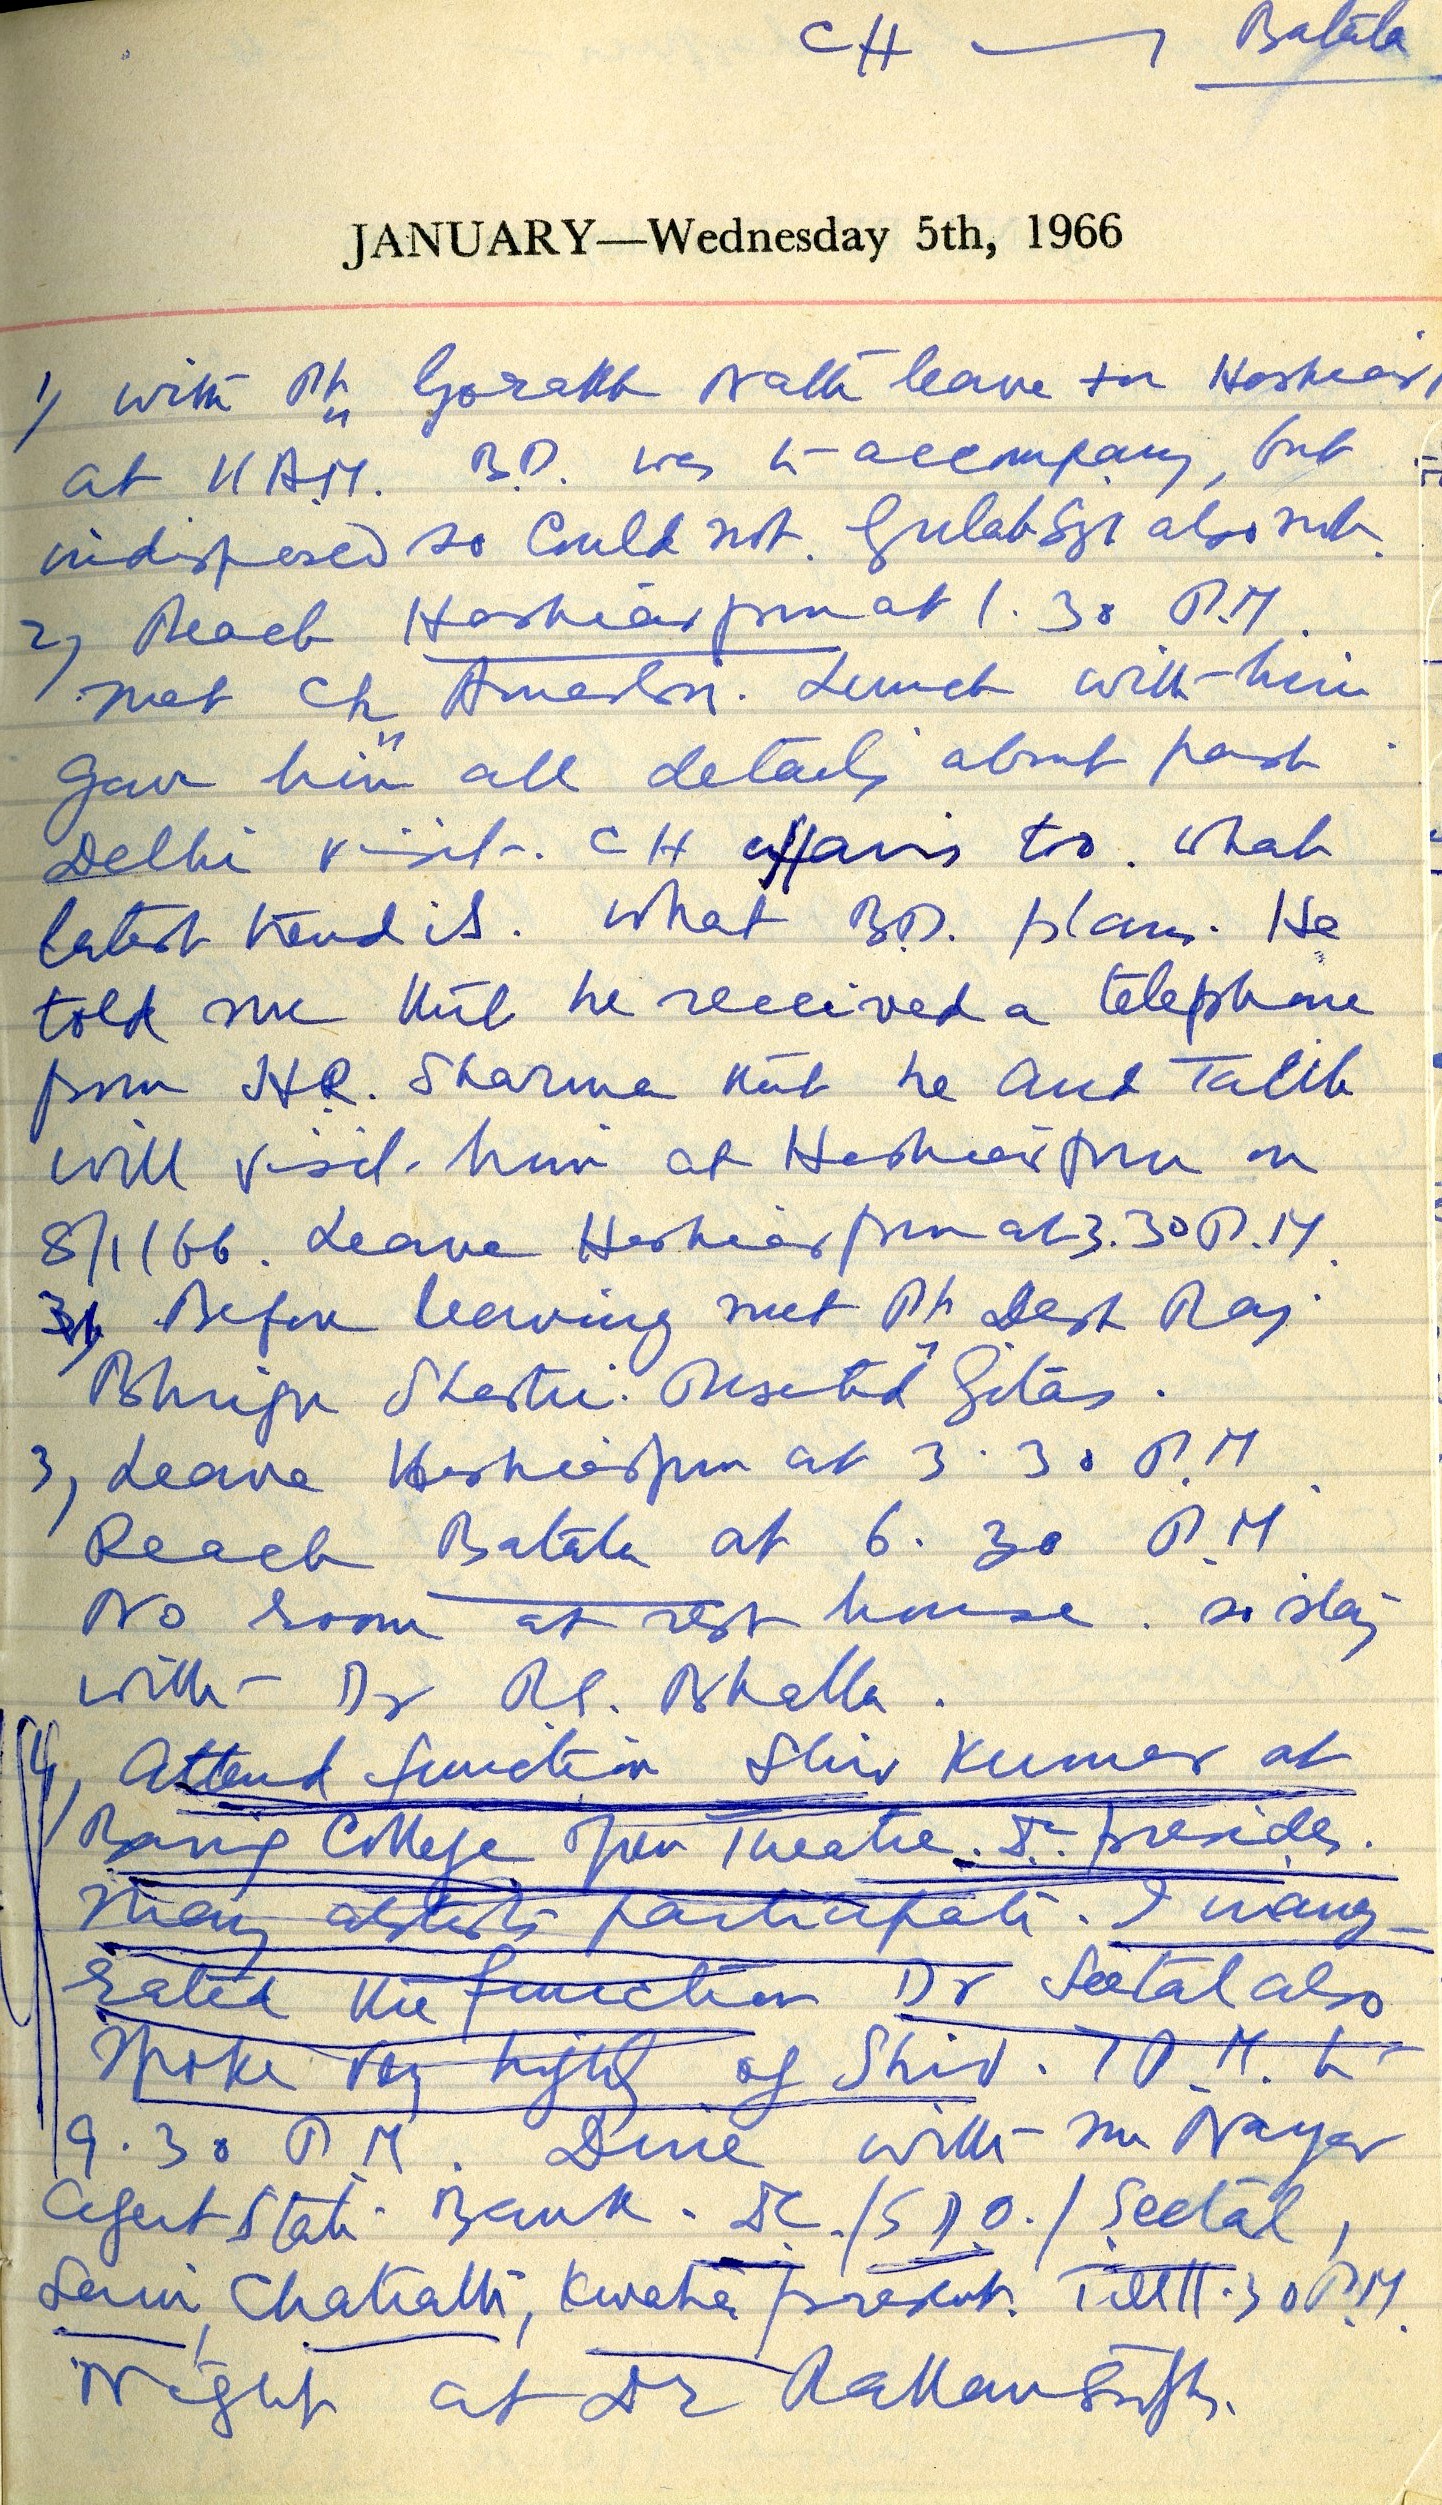 CH → Batala
JANUARY—Wednesday 5th, 1966
1) with Pt Gorakh Nath leave for Hoshiar
at 11 A.M. B.D. was to accompany, but
indisposed so could not. Gulab Sgh also not.
2) Reach Hoshiarpur at 1.30 P.M.
met Ch Amar. Lunch with him
Gave him all details about past
Delhi visit. CH affairs too. What
latest trend is. What B.D. plans. He
told me that he received a telephone
from H.R. Sharma that he and Talib
will visit him at Hoshiarpur on
8/1/66. Leave Hoshiarpur at 3.30 P.M.
3) Before leaving met Pt Desh Raj
Bhrigu Shastri. Presented Gitas.
3) Leave Hoshiarpur at 3.30 P.M.
Reach Batala at 6.30 P.M
No room at rest house. so stay
with Dr Bhalla.
4) Attend function Shiv Kumar at
Baring College Open Theatre. DC presides.
Many artists participate. I inaug-
rated the function Dr Seetal also
spoke very highly of Shiv. 7 P.M. to
9.30 P.M. Dine with Mr Nayar
Agent State Bank. DC./S D O./ Seetal,
Chatrath, present. Till 11.30 P.M.
Night at Dr